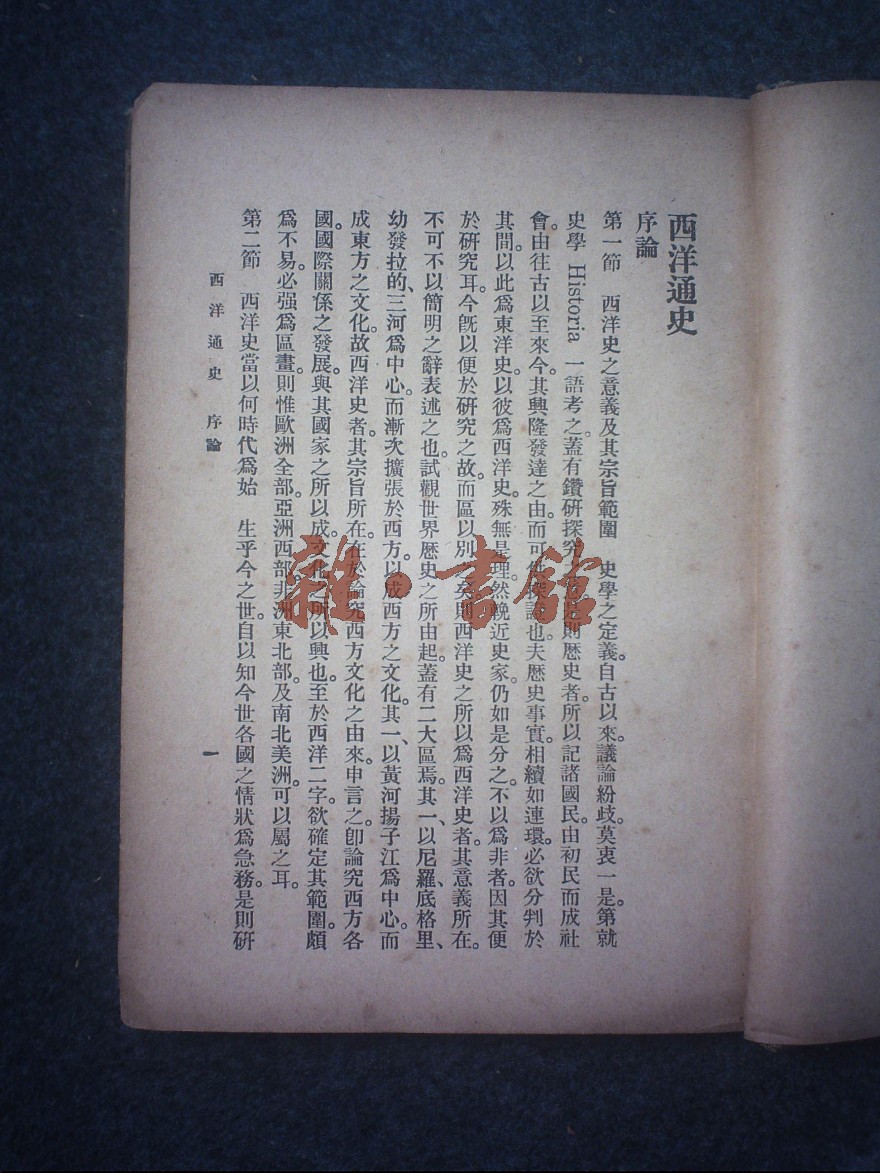 西洋通史
序論
第一節 西洋史之意義及其宗旨範圍 史學之定義。自古以來。議論紛歧。莫衷一是。第就
史學 Historia 一語考之。蓋有鑽研探究則歷史者。所以記諸國民。由初民而成社
會。由往古以至來今。其興隆發達之由。而可也。夫歷史事實。相續如連環。必欲分判於
其間。以此爲東洋史。以彼爲西洋史。殊無是理。然輓近史家。仍如是分之。不以爲非者。因其便
於硏究耳。今旣以便於硏究之故。而區以別之矣。則西洋史之所以爲西洋史者。其意義所在。
不可不以簡明之辭表述之也。試觀世界歷史之所由起。蓋有二大區焉。其一、以尼羅、底格里、
幼發拉的、三河爲中心。而漸次擴張於西方。以成西方之文化。其一、以黃河揚子江爲中心。而
成東方之文化。故西洋史者。其宗旨所在。在於論究西方文化之由來。申言之。卽論究西方各
國。國際關係之發展。與其國家之所以成。文化之所以興也。至於西洋二字。欲確定其範圍。頗
爲不易。必强爲區畫。則惟歐洲全部。亞洲西部。非洲東北部。及南北美洲。可以屬之耳。
第二節 西洋史當以何時代爲始 生乎今之世。自以知今世各國之情狀爲急務。是則硏
西洋通史 序論
一
雜·書館